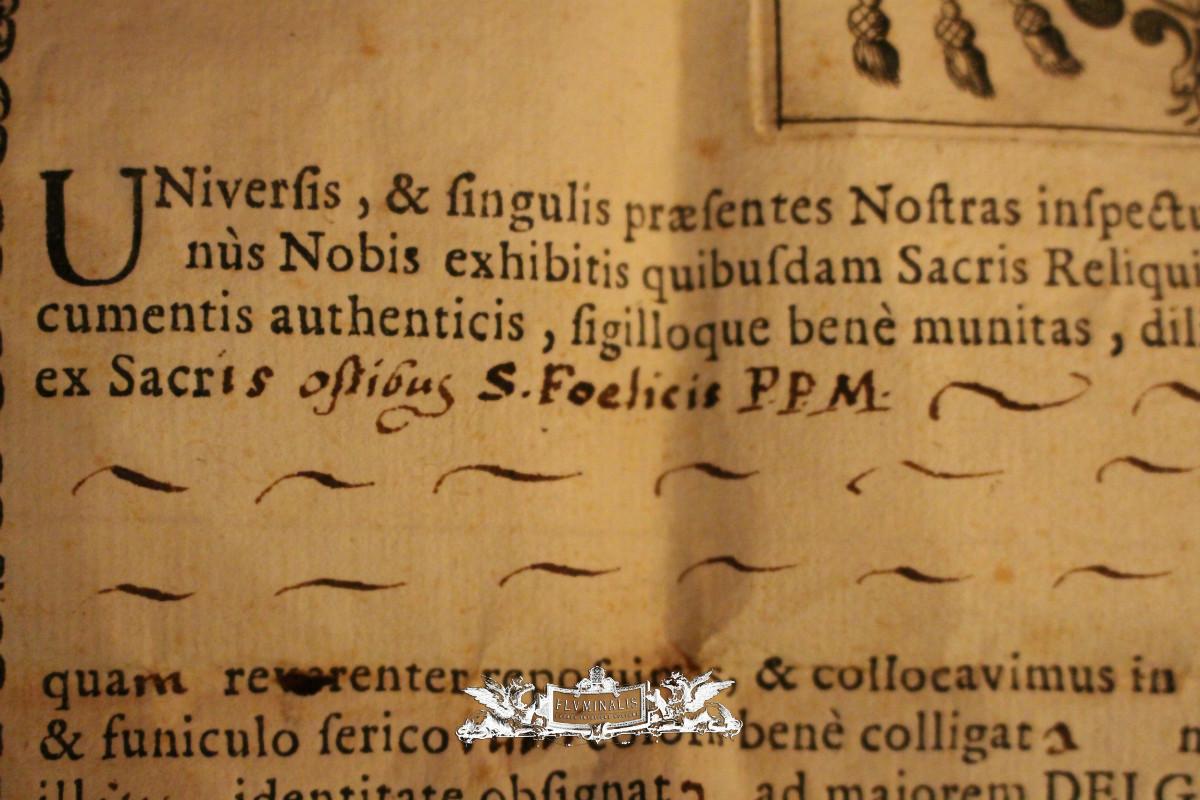 UNiverſis, & ſingulis præſentes Noſtras inſpectu
nùs Nobis exhibitis quibuſdam Sacris Reliqui
cumentis authenticis, ſigilloque benè munitas, dil
ex Sacris oſsibus S. Foelicis P.P.M.
quam reverenter repoſuimus, & collocavimus in
& funiculo ſerico benè colligata
identitate obſignata ad majorem DEI G
FLVMINALIS